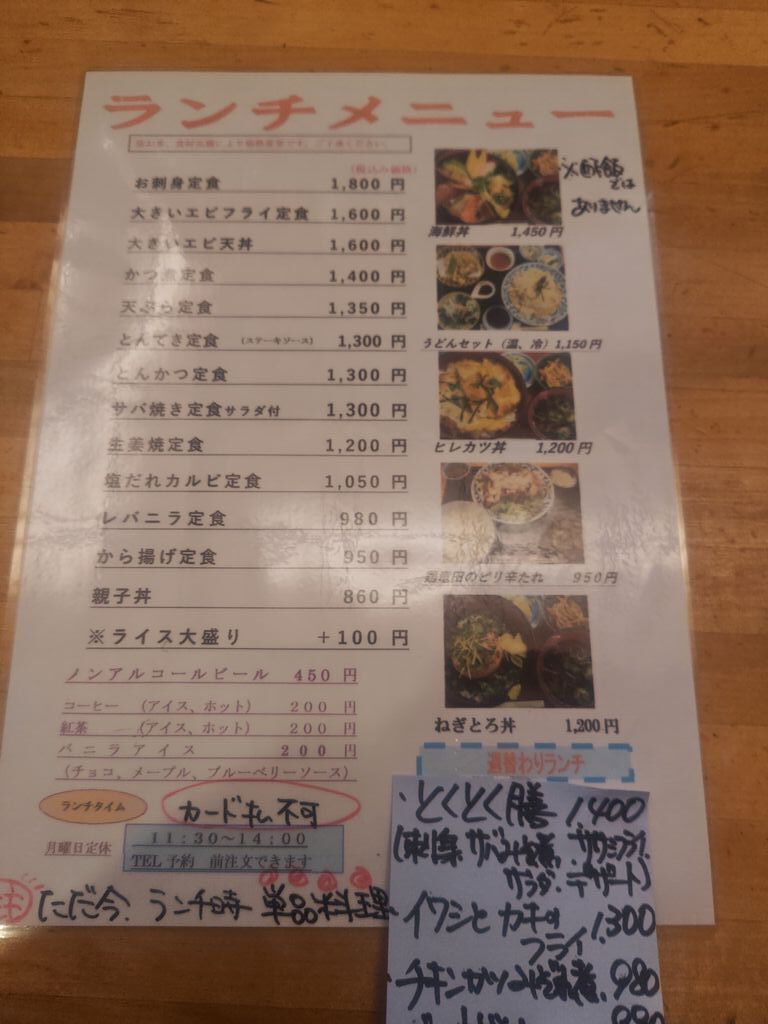 ランチメニュー
(税込み価格)
お刺身定食 1,800 円
大きいエビフライ定食 1,600 円
大きいエビ天丼 1,600 円
かつ煮定食 1,400 円
天ぷら定食 1,350 円
とんてき定食 (ステーキソース) 1,300 円
とんかつ定食 1,300 円
サバ焼き定食サラダ付 1,300 円
生姜焼定食 1,200 円
塩だれカルビ定食 1,050 円
レバニラ定食 980 円
から揚げ定食 950 円
親子丼 860 円
※ライス大盛り +100 円
ノンアルコールビール 450 円
コーヒー (アイス、ホット) 200 円
紅茶 (アイス、ホット) 200 円
バニラアイス 200 円
(チョコ、メープル、ブルーベリーソース)
ランチタイム
カード払不可
月曜日定休
11:30～14:00
TEL予約 前注文できます
ただ今、ランチ時 単品料理
※酢飯
では
ありません
海鮮丼 1,450円
うどんセット（温、冷）1,150円
ヒレカツ丼 1,200円
ピリ辛たれ 950円
ねぎとろ丼 1,200円
週替わりランチ
・とくとく膳 1.400
サラダ、デザート)
イワシとカキの
フライ 1.300
・チキンカツ 980